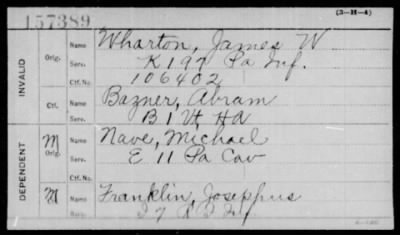 157389
(3-H-4)
INVALID
Orig.
Name Wharton, James W
Serv. K 197 Pa Inf.
Ctf. No. 106402
Ctf.
Name Bazner, Abram
Serv. B 1 Vt HA
DEPENDENT
M
Orig.
Name Nave, Michael
Serv. E 11 Pa Cav
Ctf. No.
M
Name Franklin, Josephus
Serv. Inf